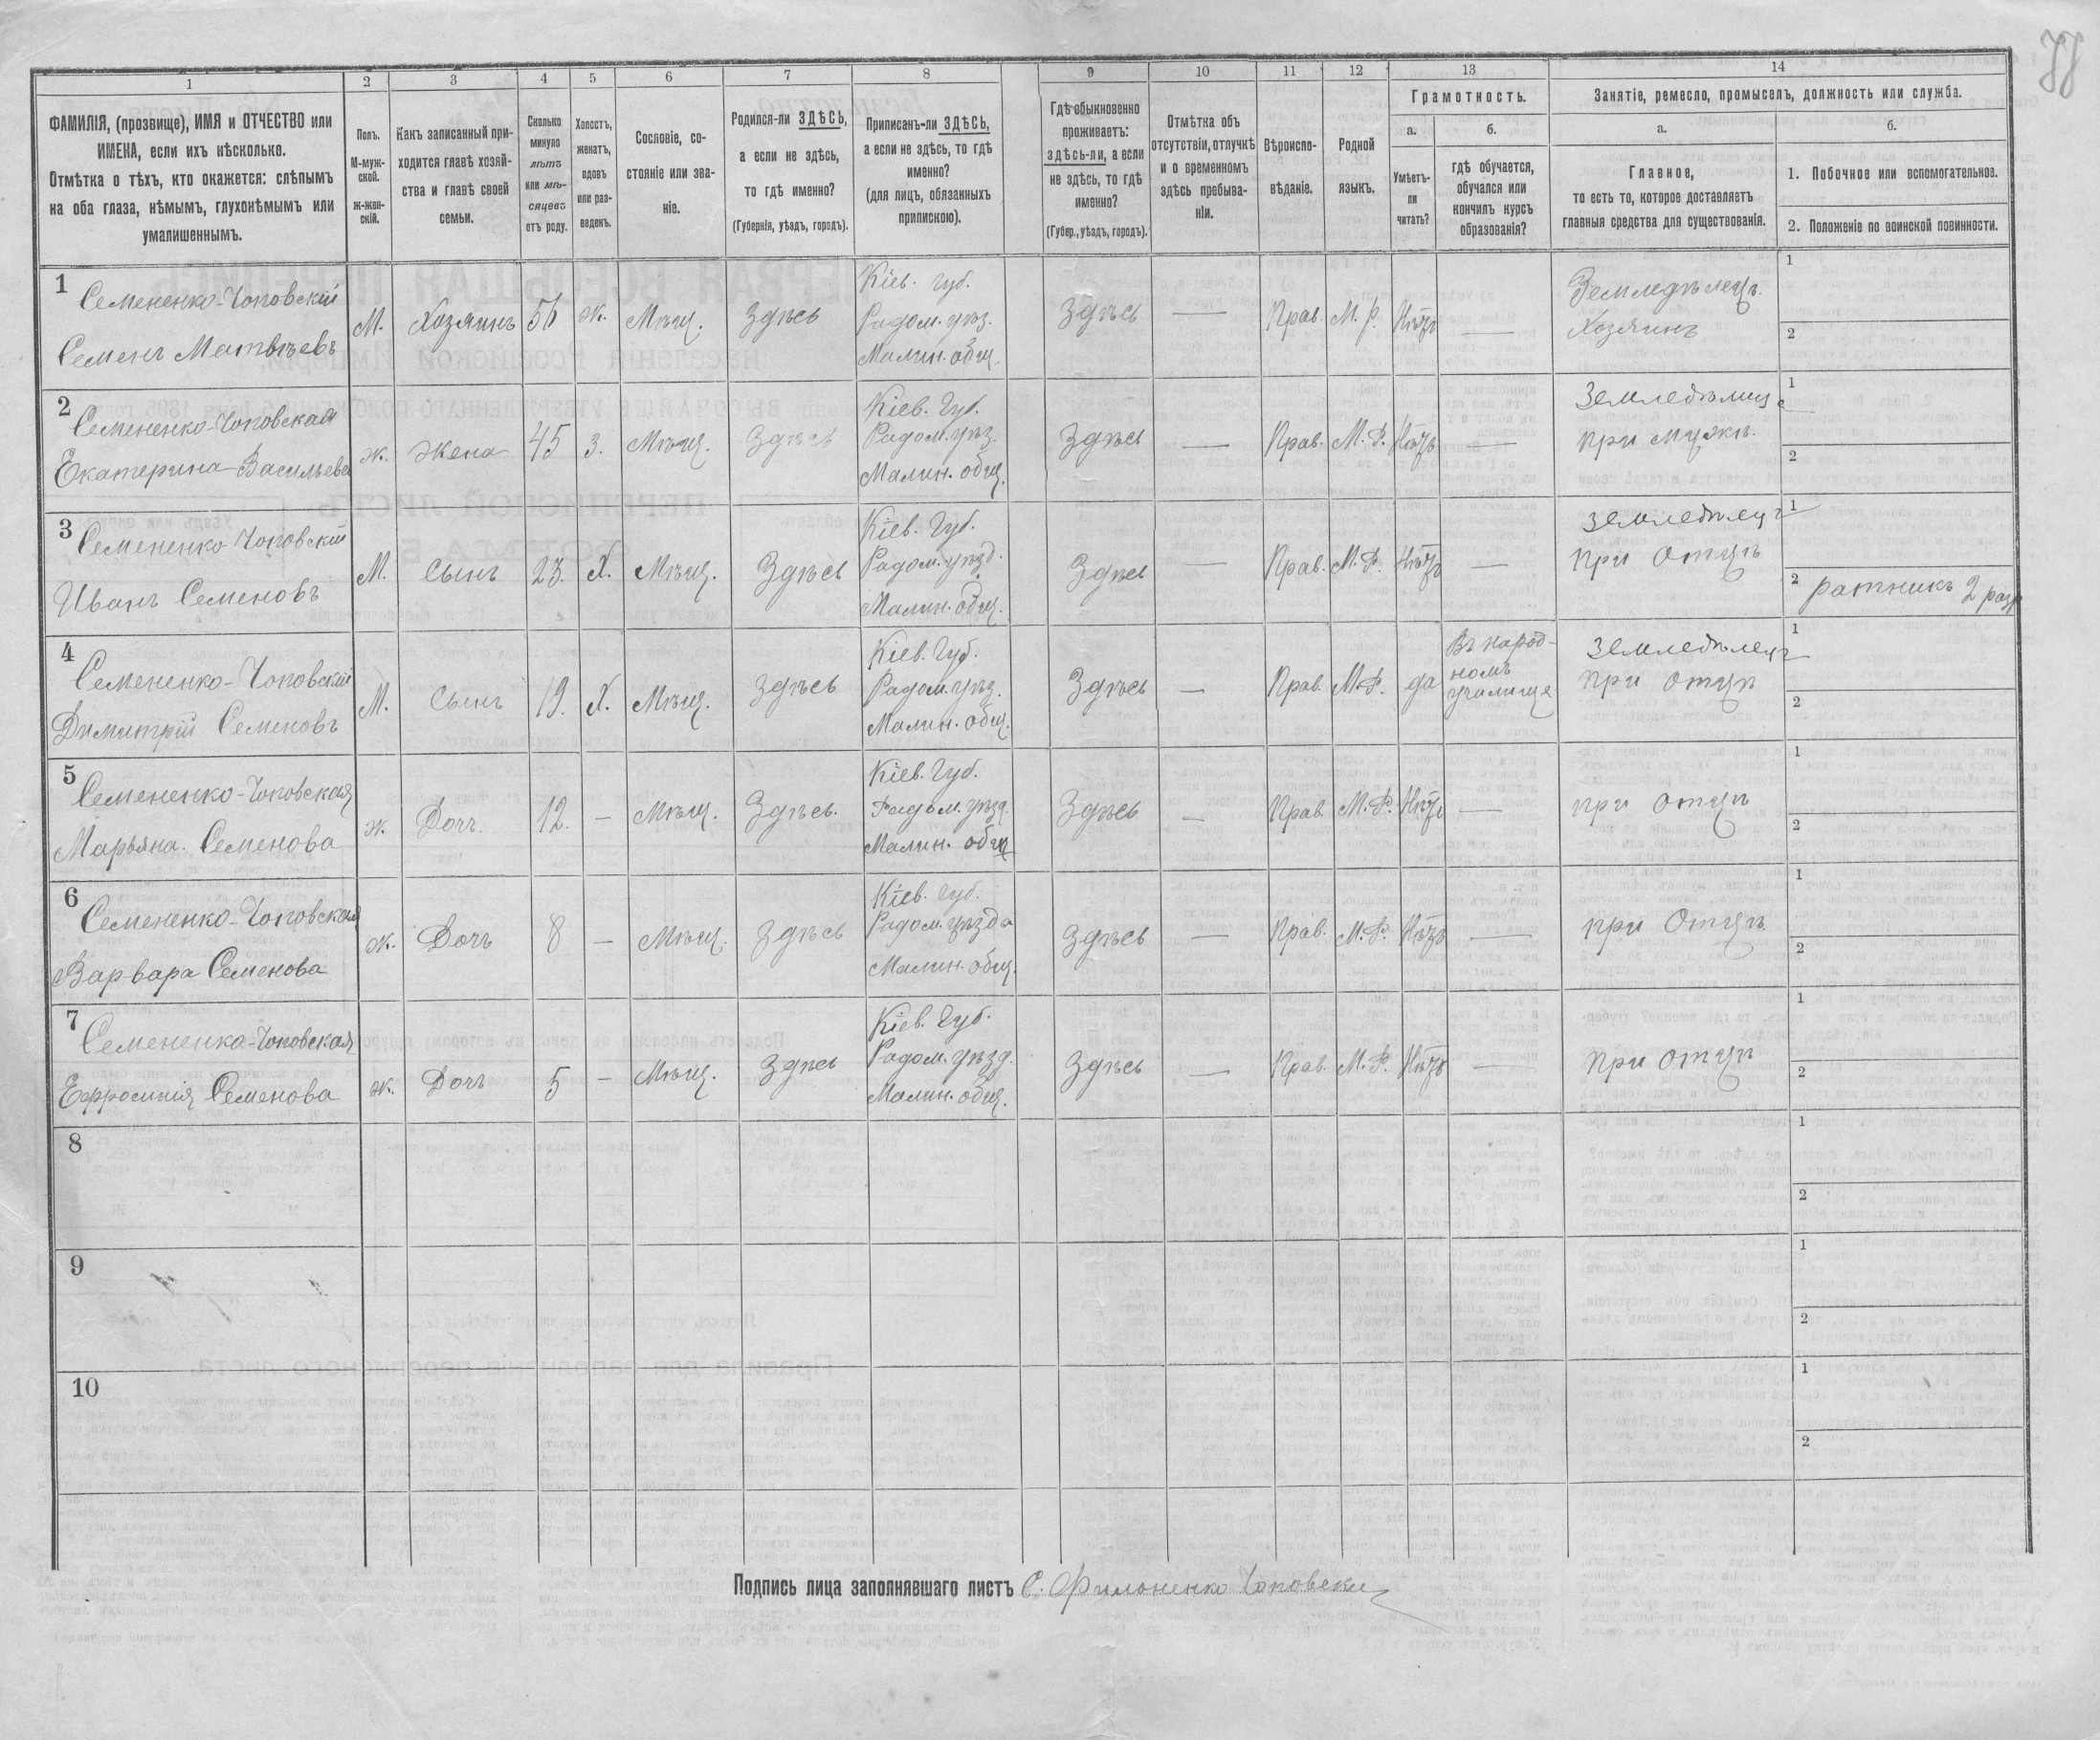 77
1
2
3
4
5
6
7
8
9
10
11
12
13
14
ФАМИЛІЯ, (прозвище), ИМЯ и ОТЧЕСТВО или
ИМЕНА, если ихъ нѣсколько.
Отмѣтка о тѣхъ, кто окажется: слѣпымъ
на оба глаза, нѣмымъ, глухонѣмымъ или
умалишеннымъ.
Полъ.
М-муж-
ской.
ж-жен-
скій.
Какъ записанный при-
ходится главѣ хозяй-
ства и главѣ своей
семьи.
Сколько
минуло
лѣтъ
или мѣ-
сяцевъ
отъ роду.
Холостъ,
женатъ,
вдовъ
или раз-
веденъ.
Сословіе, со-
стояніе или зва-
ніе.
Родился-ли ЗДѢСЬ,
а если не здѣсь,
то гдѣ именно?
(Губернія, уѣздъ, городъ).
Приписанъ-ли ЗДѢСЬ,
а если не здѣсь, то гдѣ
именно?
(для лицъ, обязанныхъ
припискою).
Гдѣ обыкновенно
проживаетъ:
здѣсь-ли, а если
не здѣсь, то гдѣ
именно?
(Губер., уѣздъ, городъ).
Отмѣтка объ
отсутствіи, отлучкѣ
и о временномъ
здѣсь пребыва-
ніи.
Вѣроиспо-
вѣданіе.
Родной
языкъ.
Грамотность.
а.
Умѣетъ-
ли
читать?
б.
гдѣ обучается,
обучался или
кончилъ курсъ
образованія?
Занятіе, ремесло, промыселъ, должность или служба.
а.
Главное,
то есть то, которое доставляетъ
главныя средства для существованія.
б.
1. Побочное или вспомогательное.
2. Положеніе по воинской повинности.
1
Семененко-Чоповскій
Семенъ Матвѣевъ
М.
Хозяинъ
56
ж.
Мѣщ.
Здѣсь
Кіев. губ.
Радом. уѣз.
Малин. общ.
Здѣсь
—
Прав.
М. р.
Нѣтъ
—
Земледѣлецъ.
Хозяинъ
1
2
2
Семененко-Чоповская
Екатерина Васильева
ж.
жена
45
з.
Мѣщ.
Здѣсь
Кіев. Губ.
Радом. уѣз.
Малин. общ.
Здѣсь
—
Прав.
М. Р.
Нѣтъ
—
при мужѣ.
1
2
3
Семененко Чоповскій
Иванъ Семеновъ
М.
Сынъ
23.
Х.
Мѣщ.
Здѣсь
Кіев. Губ.
Радом. уѣзд.
Малин. общ.
Здѣсь
—
Прав.
М. Р.
Нѣтъ
—
Земледѣлецъ
при Отцѣ
1
2
ратникъ 2 разр
4
Семененко-Чоповскій
Димитрій Семеновъ
М.
Сынъ
19.
Х.
Мѣщ.
Здѣсь
Кіев. Губ.
Радом. уѣз.
Малин. общ.
Здѣсь
—
Прав.
М. Р.
да
Въ народ-
номъ
училище
Земледѣлецъ
при отцѣ
1
2
5
Семененко-Чоповская
Марьяна. Семенова
ж.
Доч.
12.
—
Мѣщ.
Здѣсь.
Кіев. Губ.
Радом. уѣзд.
Малин. общ
Здѣсь
—
Прав.
М. Р.
Нѣтъ
—
при отцѣ
1
2
6
Семененко-Чоповская
Варвара Семенова
ж.
Дочъ
8
—
Мѣщ.
Здѣсь
Кіев. Губ.
Радом. уѣзда
Малин. общ.
Здѣсь
—
Прав.
М. Р.
Нѣтъ
—
при Отцѣ
1
2
7
Семененка-Чоповская
Ефросинія Семенова
ж.
Дочъ
5
—
Мѣщ.
Здѣсь
Кіев. Губ.
Радом. уѣзд.
Малин. общ.
Здѣсь
—
Прав.
М. Р.
Нѣтъ
—
при отцѣ
1
2
8
1
2
9
1
2
10
1
2
Подпись лица заполнявшаго листъ С. Филоненко Чоповски